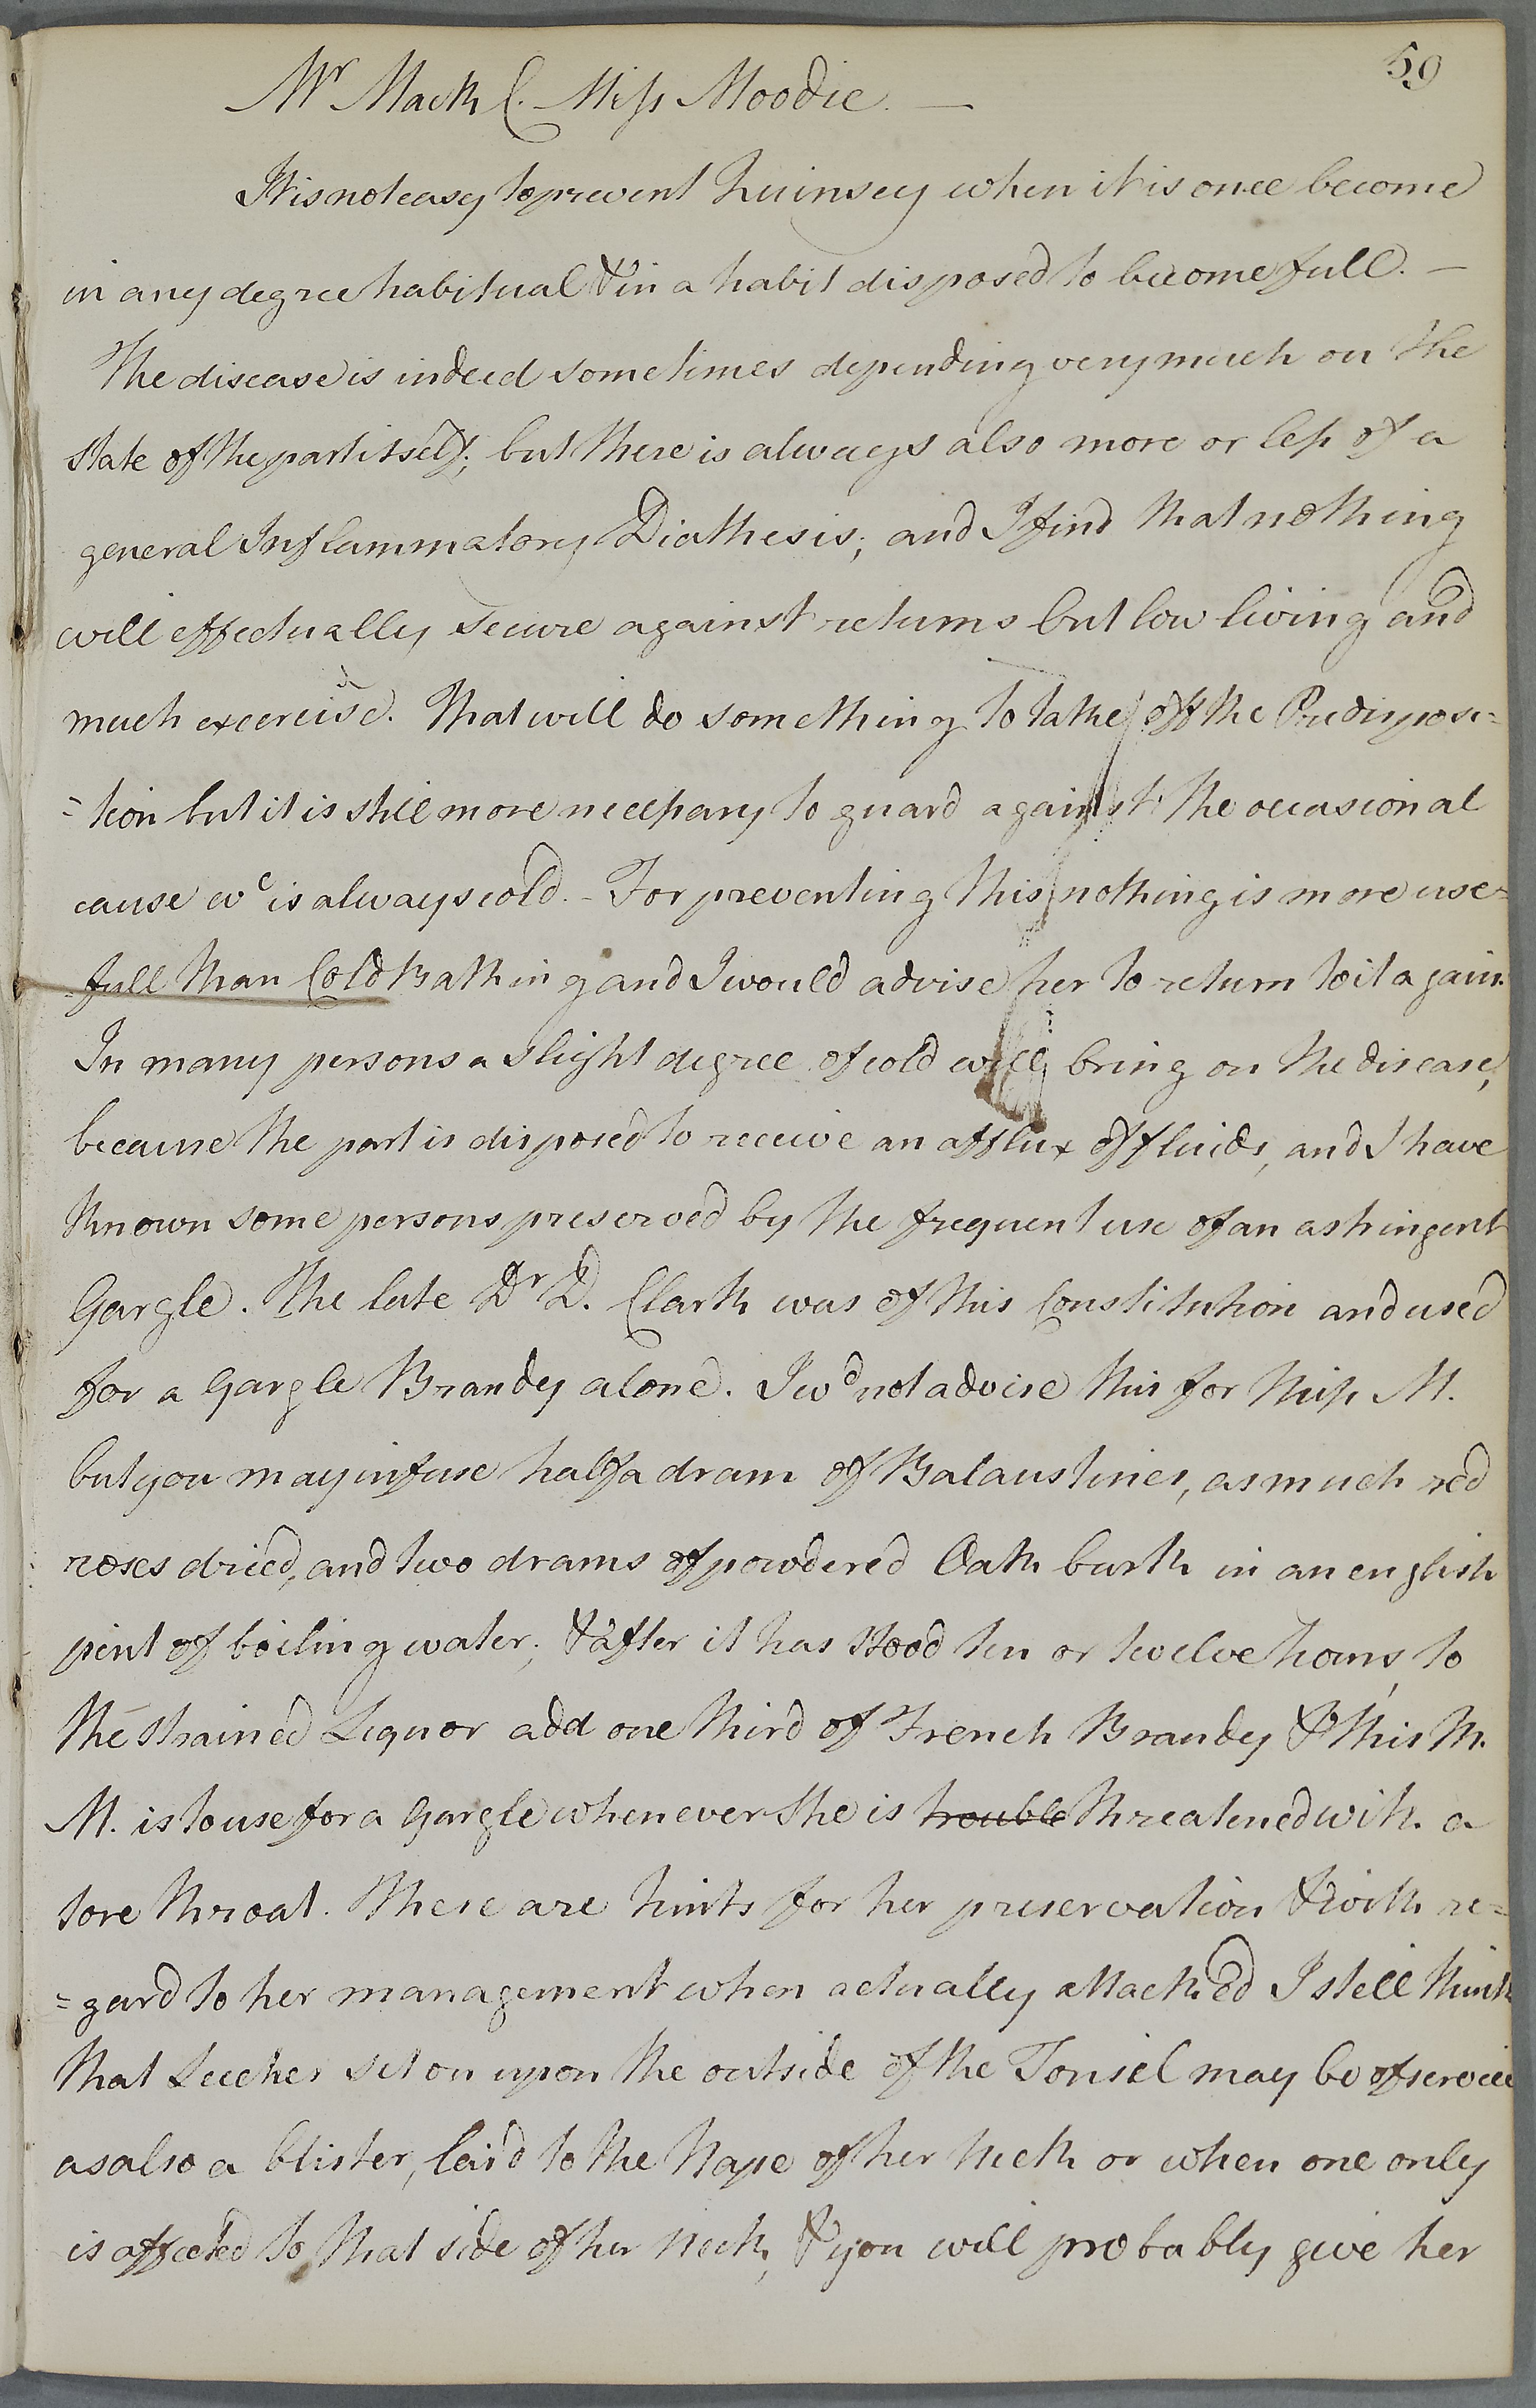 59
Mr Mack C. Miss Moodie. —
It is not easy to prevent Quinsey when it is once become
in any degree habitual & in a habit disposed to become full. —
The disease is indeed sometimes depending very much on the
state of the part itself; but there is always also more or less of a
general Inflammatory Diathesis; and I find that nothing
will effectually secure against returns but low living and
much excercise. That will do something to take off the Predisposi=
=tion but it is still more necessary to guard against the occasional
cause wc is always cold. - For preventing this nothing is more use=
=full than Cold Bathing and I would advise her to return to it again.
In many persons a slight degree of cold will bring on the disease,
because the part is disposed to receive an afflux of fluids, and I have
known some persons preserved by the frequent use of an astringent
Gargle. The late Dr D. Clark was of this Constitution and used
for a Gargle Brandy alone. I wd not advise this for Miss M.
but you may infuse half a dram of Balaustines, as much red
roses dried, and two drams of powdered Oak bark in an english
pint of boiling water; & after it has stood ten or twelve hours, to
the strained Liquor add one third of French Brandy & this M.
M. is to use for a Gargle whenever she is trouble threatened with a
sore throat. These are hints for her preservation & with re=
=gard to her management when actually attacked I still think
that Leeches set on upon the outside of the Tonsil may be of service
as also a blister, laid to the Nape of her Neck or when one only
is affected to that side of her Neck, & you will probably give her